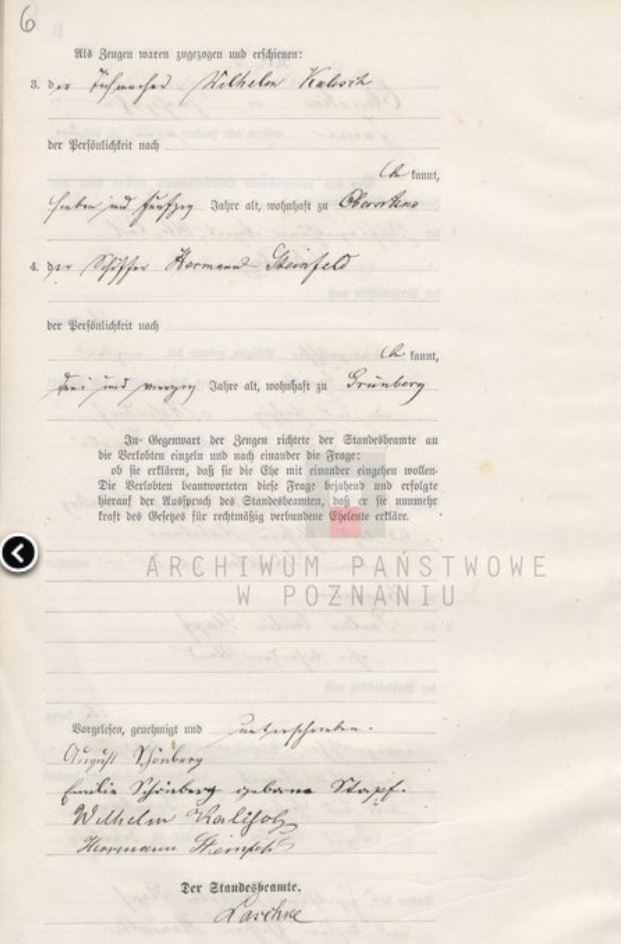 6
Als Zeugen waren zugezogen und erschienen:
3. der Tuchmacher Wilhelm
der Persönlichkeit nach
be kannt,
sieben und fünfzig Jahre alt, wohnhaft zu
4. der Schiffer Hermann Steinfeld
der Persönlichkeit nach
be kannt,
drei und vierzig Jahre alt, wohnhaft zu Grünberg
In Gegenwart der Zeugen richtete der Standesbeamte an
die Verlobten einzeln und nach einander die Frage:
ob sie erklären, daß sie die Ehe mit einander eingehen wollen.
Die Verlobten beantworteten diese Frage bejahend und erfolgte
hierauf der Ausspruch des Standesbeamten, daß er sie nunmehr
kraft des Gesetzes für rechtmäßig verbundene Eheleute erkläre.
ARCHIWUM PAŃSTWOWE
W POZNANIU
Vorgelesen, genehmigt und unterschrieben.
August Schönberg
Emilie Schönberg geborne Stapf.
Wilhelm
Herrmann
Der Standesbeamte.
Laschke